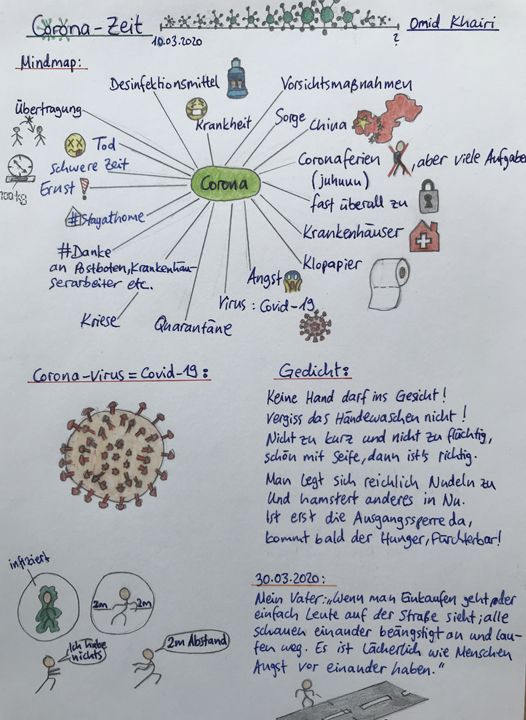 Corona-Zeit
10.03.2020
?
Omid Khairi
Mindmap:
Desinfektionsmittel
Vorsichtsmaßnahmen
Übertragung
Krankheit
Sorge
China
Tod
Coronaferien
, aber viele Aufgaben
(juhuuu)
schwere Zeit
100kg
Ernst
Corona
fast überall zu
#Stayathome
Krankenhäuser
#Danke
an Postboten, Krankenhäu-
serarbeiter etc.
Klopapier
Angst
Virus: Covid-19
Kriese
Quarantäne
Corona-Virus = Covid-19:
Gedicht:
Keine Hand darf ins Gesicht!
Vergiss das Händewaschen nicht!
Nicht zu kurz und nicht zu flüchtig,
schön mit Seife, dann ist's richtig.
Man legt sich reichlich Nudeln zu
Und hamstert anderes in Nu.
Ist erst die Ausgangssperre da,
kommt bald der Hunger, Fürchterbar!
infiziert
2m
2m
Ich habe
nichts
2m Abstand
30.03.2020:
Mein Vater: „Wenn man Einkaufen geht, oder
einfach Leute auf der Straße sieht; alle
schauen einander beängstigt an und lau-
fen weg. Es ist Lächerlich wie Menschen
Angst vor einander haben."